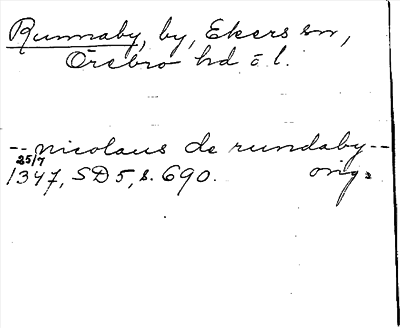 Runnaby, by, Ekers sn,
Örebro hd ö. l.
-- nicolaus de rundaby --
25/7
1347, SD 5, s. 690. orig.